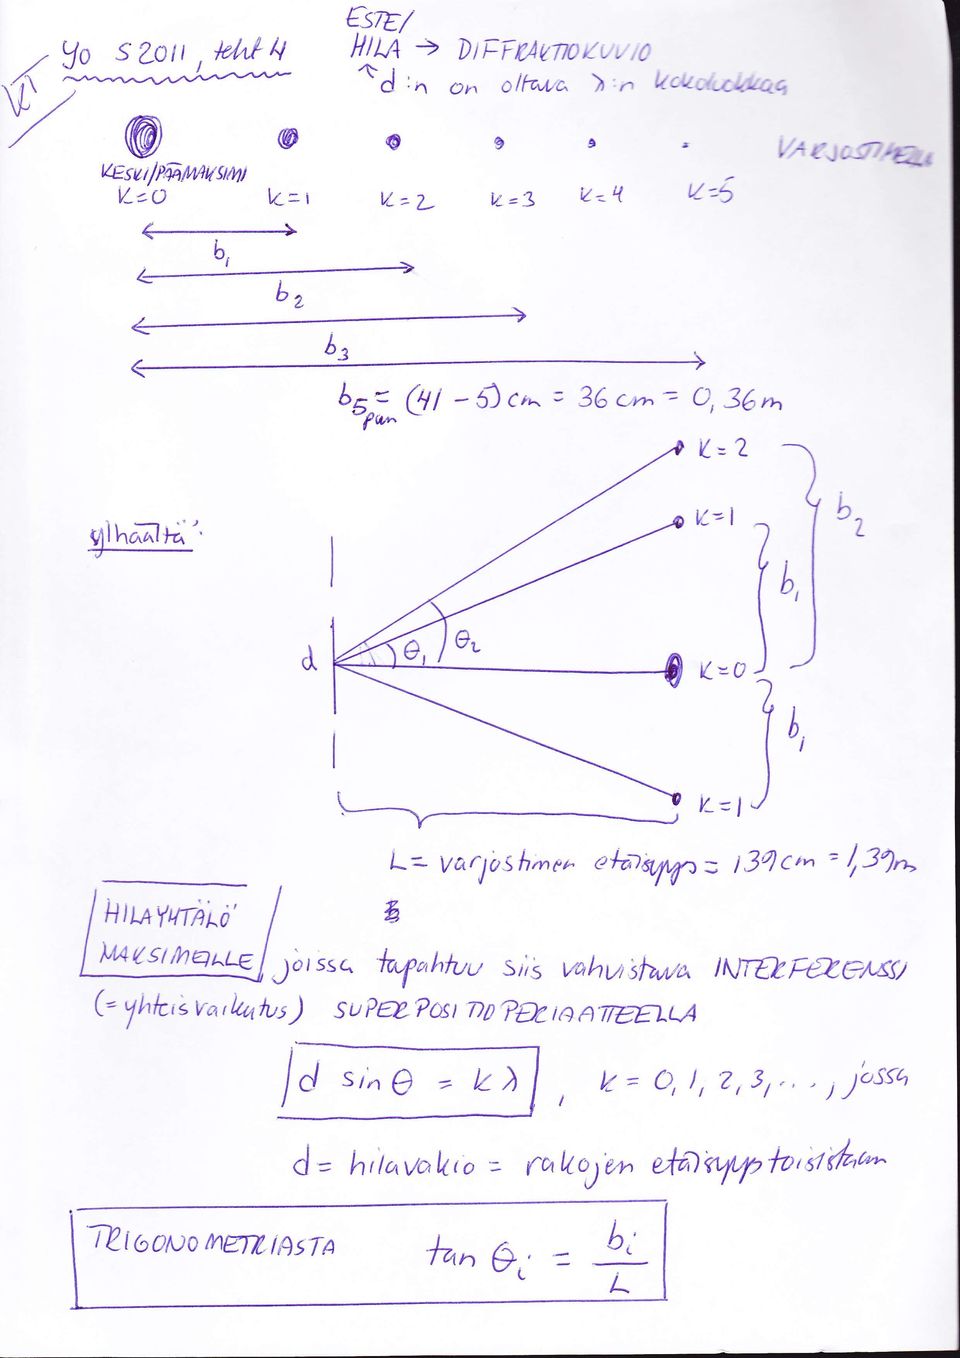 ESTE/
Yo S2011, teht 4
HILA → DIFFRAKTIOKUVIO
KT
↑ d:n on oltava λ:n kokoluokkaa
VARJOSTIMELLA
KESKI/PÄÄMAKSIMI
K=0 K=1 K=2 K=3 K=4 K=5
b₁
b₂
b₃
b₅ pun = (41 - 5) cm = 36 cm = 0,36 m
K=2
K=1
b₂
ylhäältä:
b₁
d θ₁ θ₂
K=0
b₁
K=1
L = varjostimen etäisyys = 139 cm = 1,39 m
HILAYHTÄLÖ
MAKSIMEILLE joissa tapahtuu siis vahvistava INTERFERENSSI
(= yhteisvaikutus) SUPERPOSITIOPERIAATTEELLA
d sin θ = k λ , K = 0, 1, 2, 3, ..., jossa
d = hilavakio = rakojen etäisyys toisistaan
TRIGONOMETRIASTA tan θᵢ = bᵢ / L